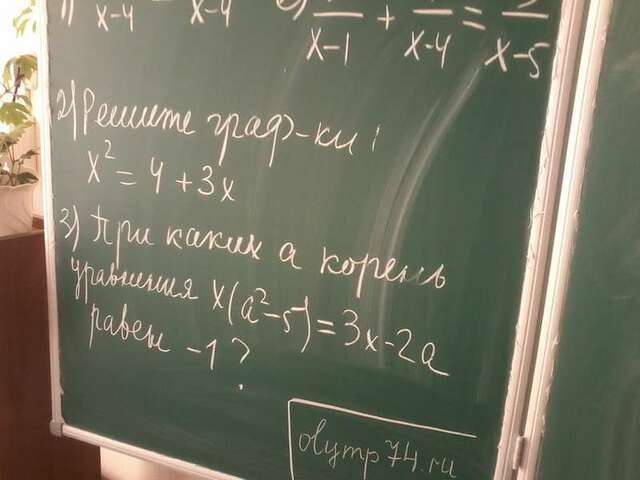 x-4 x-4 x-1 + x-4 = x-5
2) Решите граф-ки:
x² = 4 + 3x
3) При каких а корень
уравнения x(a²-5) = 3x-2a
равен -1?
olymp74.ru